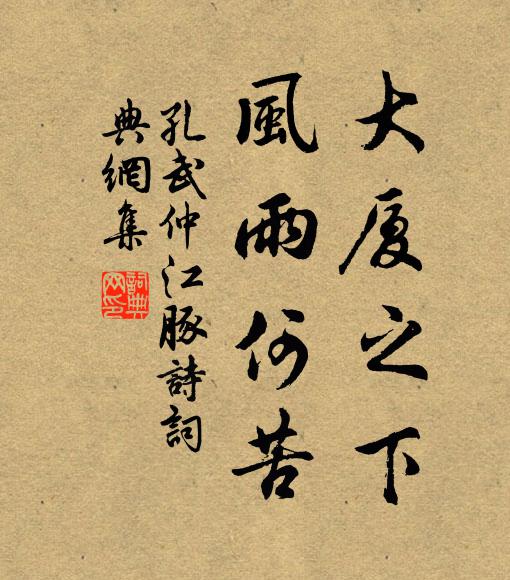 大厦之下
風雨何苦
孔武仲江豚詩詞
典網集
詞典
网印